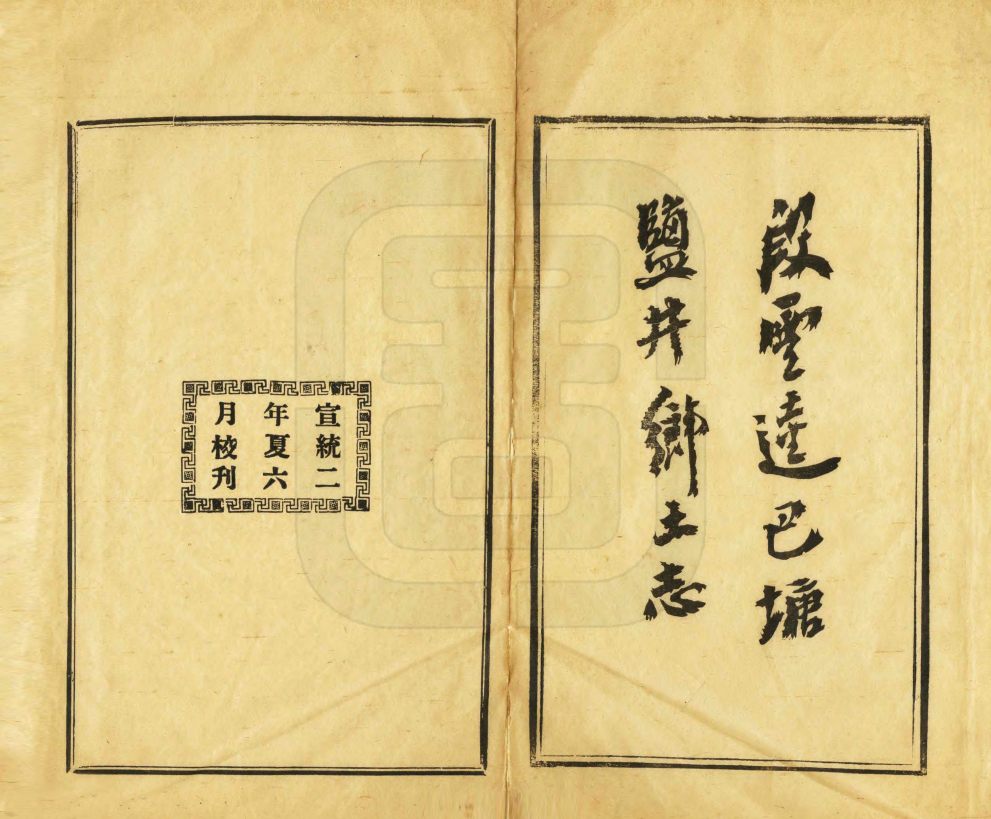 段雲逵巴塘
鹽井鄉土志
宣統二
年夏六
月校刊